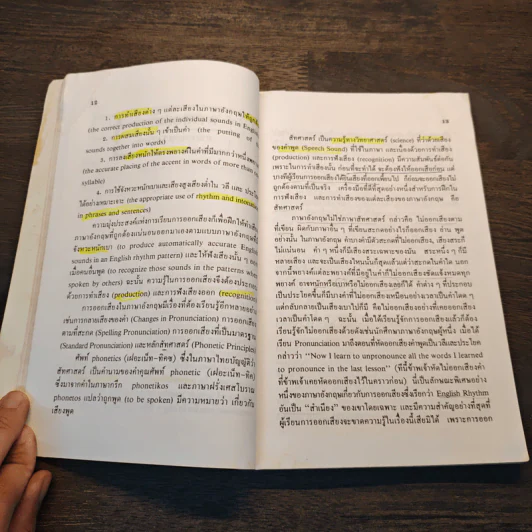 18
1. การทำเสียงต่าง ๆ แต่ละเสียงในภาษาอังกฤษให้ถูกต้อง
(the correct production of the individual sounds in English
2. การผสมเสียงนั้น ๆ เข้าเป็นคำ (the putting of
sounds together into words)
3. การลงเสียงหนักให้ตรงพยางค์ในคำที่มีมากกว่าหนึ่งพยางค์
(the accurate placing of the accent in words of more than
syllable)
4. การใช้จังหวะหนักเบาและเสียงสูงเสียงต่ำใน วลี และ ประโยค
ได้อย่างเหมาะสม (the appropriate use of rhythm and intonation
in phrases and sentences)
ความมุ่งประสงค์แห่งการเรียนการออกเสียงก็เพื่อฝึกให้ทำเสียง
ภาษาอังกฤษที่ถูกต้องแม่นยำออกมาเองตามแบบภาษาอังกฤษที่มี
จังหวะหนักเบา (to produce automatically accurate English
sounds in an English rhythm pattern) และให้ฟังเสียงนั้น ๆ
เมื่อคนอื่นพูด (to recognize those sounds in the patterns when
spoken by others) ฉะนั้น ความรู้ในการออกเสียงจึงต้องประกอบ
ด้วยการทำเสียง (production) และการฟังเสียงออก (recognition)
การออกเสียงในภาษาอังกฤษมีเรื่องที่ต้องเรียนรู้อีกหลายอย่าง
เช่นการกลายเสียงของคำ (Changes in Pronunciation) การออกเสียง
ตามที่สะกด (Spelling Pronunciation) การออกเสียงที่เป็นมาตรฐาน
(Standard Pronunciation) และหลักสัทศาสตร์ (Phonetic Principles)
ศัพท์ phonetics (เฝอะเน็ท-ทิคซ) ซึ่งในภาษาไทยบัญญัติว่า
สัทศาสตร์ เป็นคำนามของคำคุณศัพท์ phonetic (เฝอะเน็ท-ทิค)
ซึ่งมาจากคำในภาษากรีก phonetikos และภาษาฝรั่งเศสโบราณ
phonetos แปลว่าถูกพูด (to be spoken) มีความหมายว่า เกี่ยวกับ
เสียงพูด
19
สัทศาสตร์ เป็นความรู้ทางวิทยาศาสตร์ (science) ที่ว่าด้วยเสียง
ของคำพูด (Speech Sound) ที่ใช้ในภาษา และเนื่องด้วยการทำเสียง
(production) และการฟังเสียง (recognition) มีความสัมพันธ์ต่อกัน
เพราะในการทำเสียงนั้น ก่อนที่จะทำได้ จะต้องฟังได้ออกเสียก่อน แต่
บางทีผู้เรียนการออกเสียงได้ยินเสียงที่ออกเพี้ยนไป ก็ย่อมจะออกเสียงไม่
ถูกต้องตามที่เป็นจริง เครื่องมือที่ดีที่สุดอย่างหนึ่งสำหรับการฝึกใน
การฟังเสียง และการทำเสียงของแต่ละเสียงของภาษาอังกฤษ คือ
สัทศาสตร์
ภาษาอังกฤษไม่ใช่ภาษาสัทศาสตร์ กล่าวคือ ไม่ออกเสียงตาม
ที่เขียน ผิดกับภาษาอื่น ๆ ที่เขียนสะกดอย่างไรก็ออกเสียง อ่าน พูด
อย่างนั้น ในภาษาอังกฤษ คำบางคำมีตัวสะกดที่ไม่ออกเสียง เสียงสระก็
ไม่แน่นอน คำ ๆ หนึ่งก็มีเสียงสระเฉพาะของมัน สระหนึ่ง ๆ ก็มี
หลายเสียง และจะเป็นเสียงไหนนั้นก็สุดแล้วแต่ว่าสะกดในคำใด นอก
จากนั้นพยางค์แต่ละพยางค์ที่มีอยู่ในคำก็ไม่ออกเสียงชัดแจ้งหมดทุก
พยางค์ อาจหนักหรือเบาหรือไม่ออกเสียงเลยก็ได้ คำต่าง ๆ ที่ประกอบ
เป็นประโยคขึ้นก็มีบางคำที่ไม่ออกเสียงเหมือนอย่างเวลาเป็นคำโดด ๆ
แต่กลับกลายเป็นเสียงเบาไปก็มี คือไม่ออกเสียงอย่างที่เคยออกเสียง
เวลาเป็นคำโดด ๆ ฉะนั้น เมื่อได้เรียนรู้จักการออกเสียงแล้วก็ต้อง
เรียนรู้จักไม่ออกเสียงด้วยดังเช่นนักศึกษาภาษาอังกฤษผู้หนึ่ง เมื่อได้
เรียน Pronunciation มาถึงตอนที่หัดออกเสียงคำพูดเป็นวลีและประโยค
กล่าวว่า “Now I learn to unpronounce all the words I learned
to pronounce in the last lesson” (ทีนี้ข้าพเจ้าหัดไม่ออกเสียงคำ
ที่ข้าพเจ้าเคยหัดออกเสียงไว้ในคราวก่อน) นี่เป็นลักษณะพิเศษอย่าง
หนึ่งของภาษาอังกฤษเกี่ยวกับการออกเสียงซึ่งเรียกว่า English Rhythm
อันเป็น “สำเนียง” ของเขาโดยเฉพาะ และมีความสำคัญอย่างที่สุดที่
ผู้เรียนการออกเสียงจะขาดความรู้ในเรื่องนี้เสียมิได้ เพราะการออก